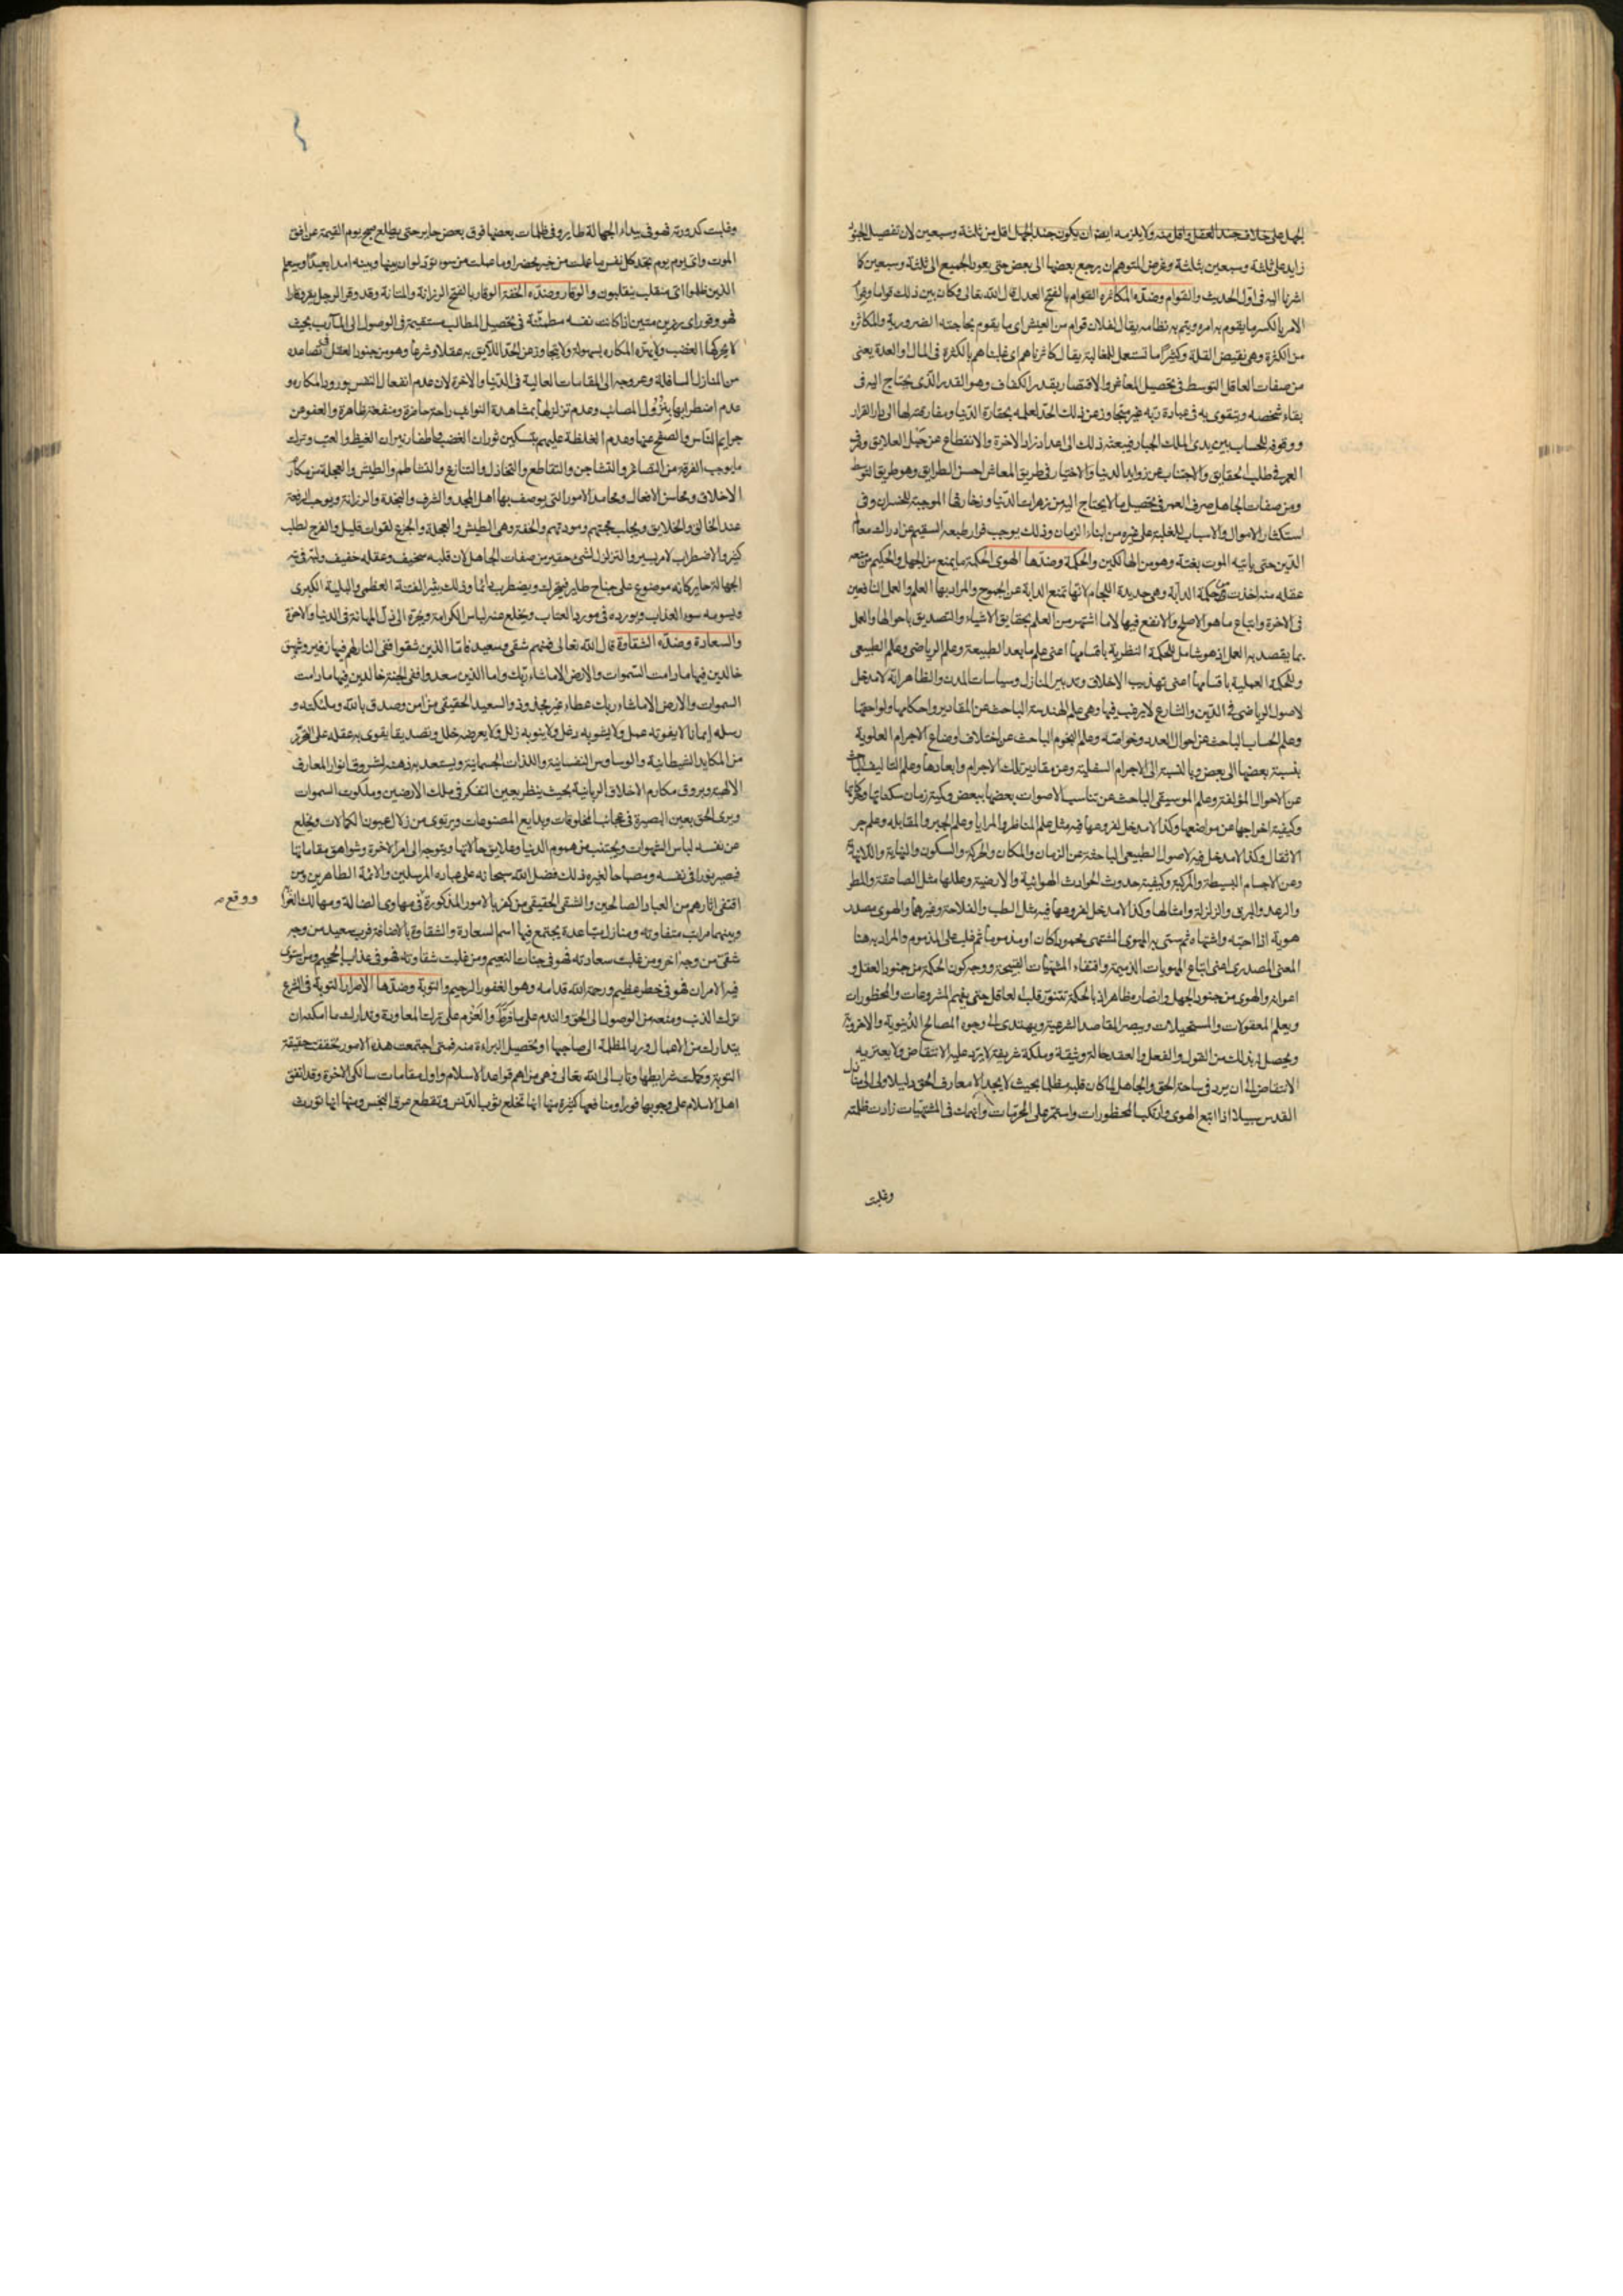 الجهل على خلاف جند العقل واقل منه ولا يلزمه ايضا ان يكون جند الجهل اقل من ثلثة وسبعين لان تفصيل الجنود
زايد على ثلثة وسبعين بثلثة وغرض المتوهم ان يرجع بعضها الى بعض حتى يعود الجميع الى ثلثة وسبعين كا
اشرنا اليه فى اول الحديث والقوام وضده المكاثرة القوام بالفتح العدل قال الله تعالى وكان بين ذلك قواما وقوام
الامر بالكسر ما يقوم به امره ويتم به نظامه يقال لفلان قوام من العيش اى ما يقوم بحاجته الضرورية والمكاثرة
من الكثرة وهى نقيض القلة وكثيرا ما تستعمل للمغالبة يقال كاثرناهم اى غلبناهم بالكثرة فى المال او العدة يعنى
من صفات العاقل التوسط فى تحصيل المعاش والاقتصار بقدر الكفاف وهو القدر الذى يحتاج اليه فى
بقاء شخصه ويتقوى به فى عبادة ربه غير متجاوز عن ذلك الحد لعلمه بحقارة الدنيا ومفارقته لها الى دار القرار
ووقوفه للحساب بين يدى الملك الجبار فيبعثه ذلك الى اعداد زاد الاخرة والانقطاع عن حبل العلايق وصرف
العمر فى طلب الحقايق والاجتناب عن زوايد الدنيا والاختيار فى طريق المعاش احسن الطرايق وهو طريق التوسط
ومن صفات الجاهل صرف العمر فى تحصيل ما لا يحتاج اليه من زهرات الدنيا وزخارفها الموجبة للخسران وفى
استكثار الاموال والاسباب للغلبة على غيره من ابناء الزمان وذلك يوجب فرار طبيعه السقيم عن ادراك معالم
الدين حتى ياتيه الموت بغتة وهو من الهالكين والحكمة وضدها الهوى الحكمة ما يمنع من الجهل والحكيم من منعه
عقله منه اخذت من حكمة الدابة وهى حديدة اللجام لانها تمنع الدابة عن الجموح والمراد بها العلم والعمل النافعين
فى الاخرة واتباع ما هو الاصلح والانفع فيها لا ما اشتهر من العلم بحقايق الاشياء والتصديق باحوالها والعمل
بما يقصد به العمل اذ هو شامل للحكمة النظرية باقسامها اعنى علم ما بعد الطبيعة وعلم الرياضى وعلم الطبيعى
وللحكمة العملية باقسامها اعنى تهذيب الاخلاق وتدبير المنازل وسياسات المدن والظاهر انه لا مدخل
لاصول الرياضى فى الدين والشارع لا يرغب فيها وهى علم الهندسة الباحث عن المقادير واحكامها ولواحقها
وعلم الحساب الباحث عن احوال العدد وخواصه وعلم النجوم الباحث عن اختلاف اوضاع الاجرام العلوية
بنسبة بعضها الى بعض وبالنسبة الى الاجرام السفلية وعن مقادير تلك الاجرام وابعادها وعلم التاليف الباحث
عن الاحوال المؤلفة وعلم الموسيقى الباحث عن تناسب الاصوات بعضها ببعض وكمية زمان سكناتها وحركاتها
وكيفية اخراجها عن مواضعها وكذا لا مدخل لفروعها فيه مثل علم المناظر والمرايا وعلم الجبر والمقابله وعلم جر
الاثقال وكذا لا مدخل فيه لاصول الطبيعى الباحثة عن الزمان والمكان والحركة والسكون والنهاية واللانهاية
وعن الاجسام البسيطة والمركبة وكيفية حدوث الحوادث الهوائية والارضية وعللها مثل الصاعقة والمطر
والرعد والبرق والزلزلة وامثالها وكذا لا مدخل لفروعها فيه مثل الطب والفلاحة وغيرهما والهوى مصدر
هويه اذا احبه واشتهاه ثم سمى به الهوى المشتهى محمودا كان او مذموما ثم غلب على المذموم والمراد به هنا
المعنى المصدرى اعنى اتباع المهويات الذميمة واقتفاء المشتهيات القبيحة ووجه كون الحكمة من جنود العقل و
اعوانه والهوى من جنود الجهل وانصاره ظاهر اذ بالحكمة تتنور قلب العاقل حتى يفهم المشروعات والمحظورات
ويعلم المعقولات والمستحيلات ويبصر المقاصد الشرعية ويهتدى الى وجوه المصالح الدنيوية والاخروية
ويحصل له بذلك من القول والفعل والعقد حالة وثيقة وملكة شريفة لا يرد عليه الانتقاض ولا يعتريه
الانتقاض الى ان يرد فى ساحة الحق والجاهل لما كان قلبه مظلما بحيث لا يجد الى معارف الحق دليلا ولا الى منازل
القدس سبيلا اذا اتبع الهوى وارتكب المحظورات واستمر على المحرمات وانهمك فى المشتهيات زادت ظلمته
وغلبت
وغلبت كدورته فهو فى بيداء الجهالة طاير وفى ظلمات بعضها فوق بعض حاير حتى يطلع صبح يوم القيمة عن افق
الموت واتى يوم تجد كل نفس ما عملت من خير محضرا وما عملت من سوء تود لو ان بينها وبينه امدا بعيدا وسيعلم
الذين ظلموا اى منقلب ينقلبون والوقار وضده الخفة الوقار بالفتح الرزانة والمتانة وقد وقر الرجل يقر وقارا
فهو وقور اى رزين متين اذا كانت نفسه مطمئنة فى تحصيل المطالب مستقيمة فى الوصول الى المآرب بحيث
لا يحركها الغضب ولا يهزه المكاره بسهولة ولا يتجاوز عن الحد اللايق به عقلا وشرعا وهو من جنود العقل فى تصاعده
من المنازل السافلة وعروجه الى المقامات العالية فى الدنيا والاخرة لان عدم انفعال النفس بورود المكاره و
عدم اضطرابها بنزول المصائب وعدم تزلزلها بمشاهدة النوائب راحة حاضرة ومنفعة ظاهرة والعفو عن
جرايم الناس والصفح عنها وعدم الغلظة عليهم بتسكين ثوران الغضب واطفاء نيران الغيظ والعتب وترك
ما يوجب الفرقة من التضاغن والتشاجر والتقاطع والتخاذل والتنازع والتشاطم والطيش والعجلة من مكارم
الاخلاق ومحاسن الافعال ومحامد الامور التى يوصف بها اهل المجد والشرف والنجدة والرزانة ويوجب الرفعة
عند الخالق والخلايق ويجلب محبتهم ومودتهم والخفة وهى الطيش والعجلة والجزع لفوات قليل والفرح لطلب
كثير والاضطراب لامر يسير والتزلزل لشئ حقير من صفات الجاهل لان قلبه سخيف وعقله خفيف ولبه فى تيه
الجهالة حاير كانه موضوع على جناح طاير فيتحرك ويضطرب دائما وذلك يثير الفتنة العظمى والبلية الكبرى
ويسومه سوء العذاب ويورده فى مورد العتاب ويخلع عنه لباس الكرامة ويجره الى ذل المهانة فى الدنيا والاخرة
والسعادة وضده الشقاوة قال الله تعالى فمنهم شقى وسعيد فاما الذين شقوا ففى النار لهم فيها زفير وشهيق
خالدين فيها ما دامت السموات والارض الا ما شاء ربك واما الذين سعدوا ففى الجنة خالدين فيها ما دامت
السموات والارض الا ما شاء ربك عطاء غير مجذوذ والسعيد الحقيقى من امن وصدق بالله وملئكته و
رسله ايمانا لا يفوته عمل ولا يشوبه دغل ولا ينوبه زلل ولا يعرضه خلل وتصديقا يقوى به عقله على التحرز
من المكايد الشيطانية والوساوس النفسانية واللذات الجسمانية ويستعد به ذهنه لشروق انوار المعارف
الالهية وبروق مكارم الاخلاق الربانية بحيث ينظر بعين التفكر فى ملك الارضين وملكوت السموات
ويرى الحق بعين البصيرة فى عجائب المخلوقات وبدايع المصنوعات ويرتوى من زلال عيون الكمالات ويخلع
عن نفسه لباس الشهوات ويجتنب من هموم الدنيا وعلايق حالاتها ويتوجه الى امر الاخرة وشواهق مقاماتها
فيصير نورا فى نفسه ومصباحا لغيره ذلك فضل الله سبحانه على عباده المرسلين والائمة الطاهرين ومن
اقتفى اثارهم من العباد الصالحين والشقى الحقيقى من كفر بالامور المذكورة فى مهاوى الضالة ومهالك الغواية
ووقع
وبينهما مراتب متفاوته ومنازل متباعدة يجتمع فيها اسم السعادة والشقاوة بالاضافة فرب سعيد من وجه
شقى من وجه اخر ومن غلبت سعادته فهو فى جنات النعيم ومن غلبت شقاوته فهو فى عذاب الجحيم ومن استوى
فيه الامران فهو فى خطر عظيم ورحمة الله قدامه وهو الغفور الرحيم والتوبة وضدها الاصرار التوبة فى الشرع
ترك الذنب ومنعه من الوصول الى الحق والندم على ما فرط والعزم على ترك المعاودة وتدارك ما امكنه ان
يتدارك من الاعمال ورد المظلمة الى صاحبها او تحصيل البراءة منه فمتى اجتمعت هذه الامور تحققت حقيقة
التوبة وكملت شرايطها وتاب الى الله تعالى وهى من اهم قواعد الاسلام واول مقامات سالكى الاخرة وقد اتفق
اهل الاسلام على وجوبها فورا ومنافعها كثيرة منها انها تخلع ثوب الدنس وتقطع عرق النجس ومنها انها تورث